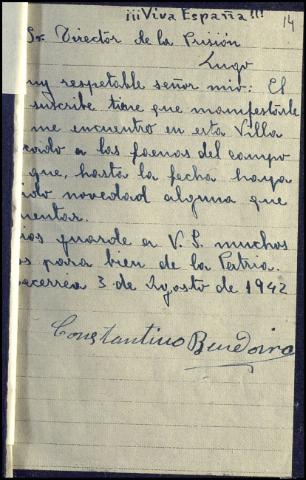 ¡¡¡Viva España!!!
14
Sr Director de la Prisión
Lugo
uy respetable señor mio: El
suscribe tiene que manifestarle
me encuentro en esta Villa
cardo a las faenas del campo
que, hasta la fecha haya
ido novedad alguna que
mentar.
ios guarde a V. S. muchos
s para bien de la Patria.
acerrea 3 de Agosto de 1942
Constantino Bendoiro